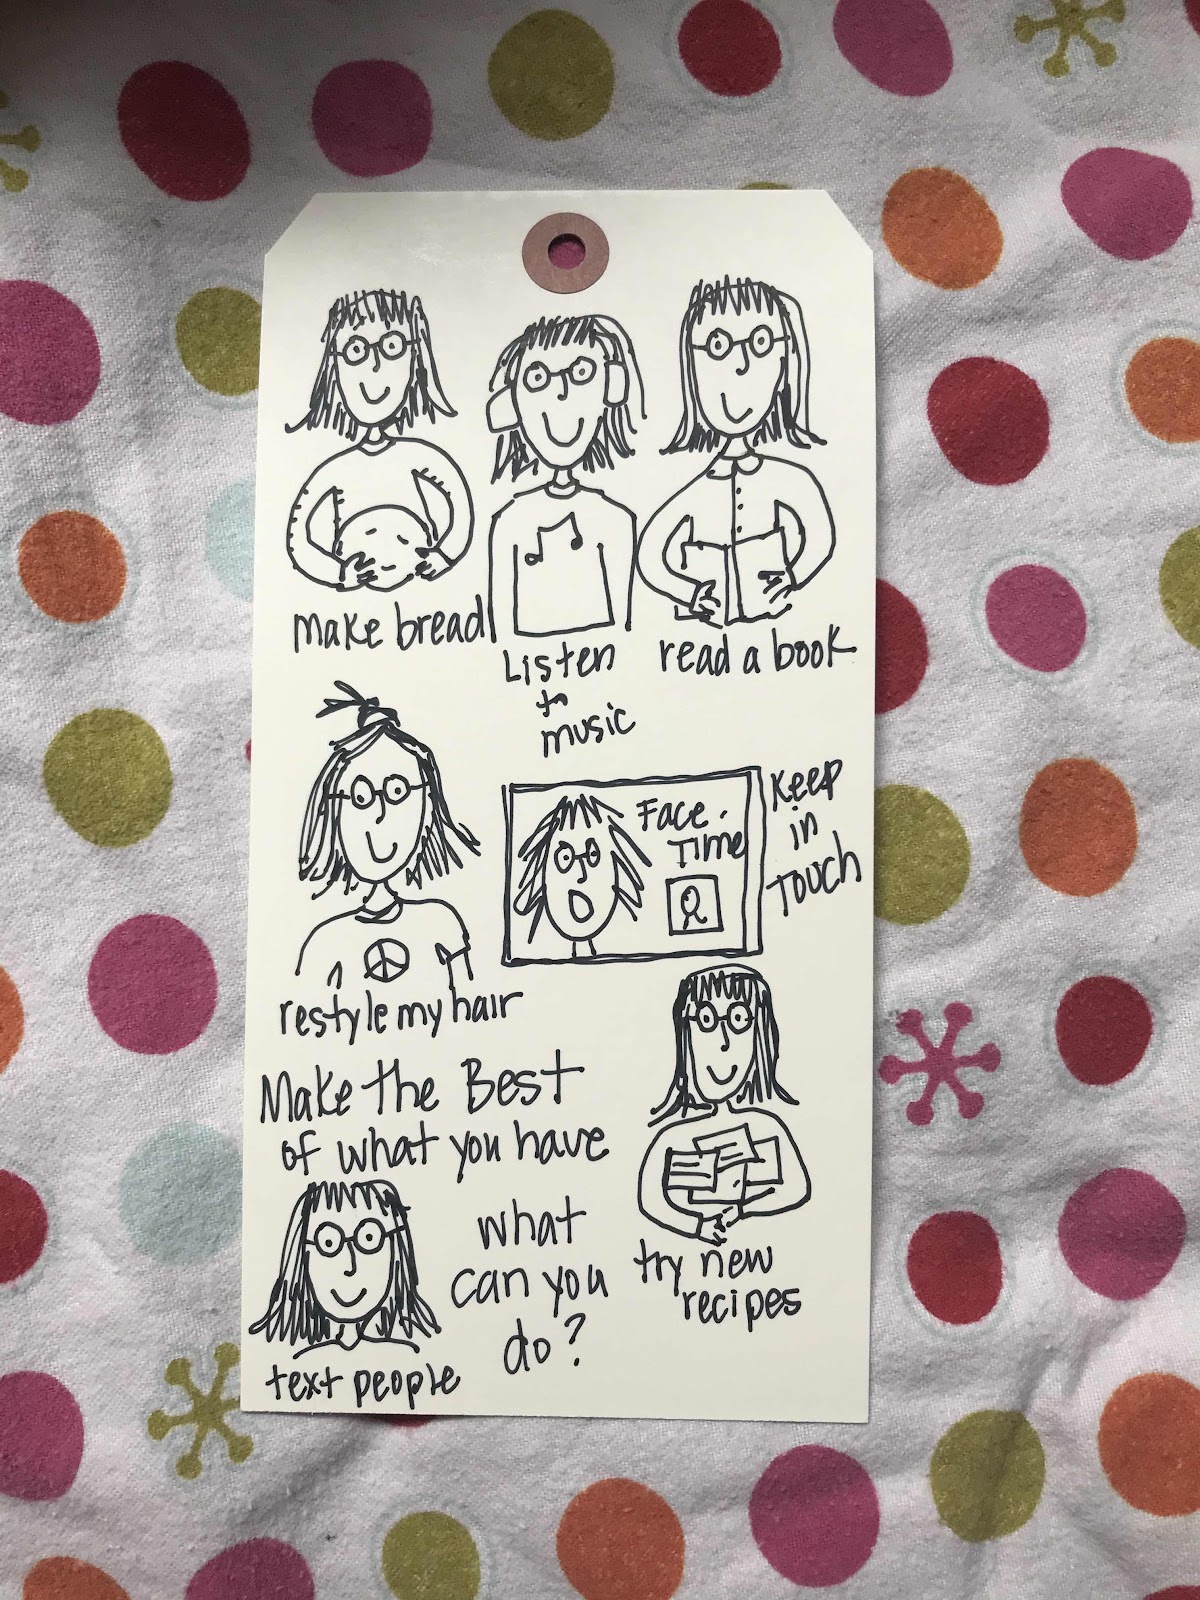 make bread
Listen
to
music
read a book
restyle my hair
Face.
Time
Keep
in
Touch
Make the Best
of what you have
what
can you
do?
try new
recipes
text people